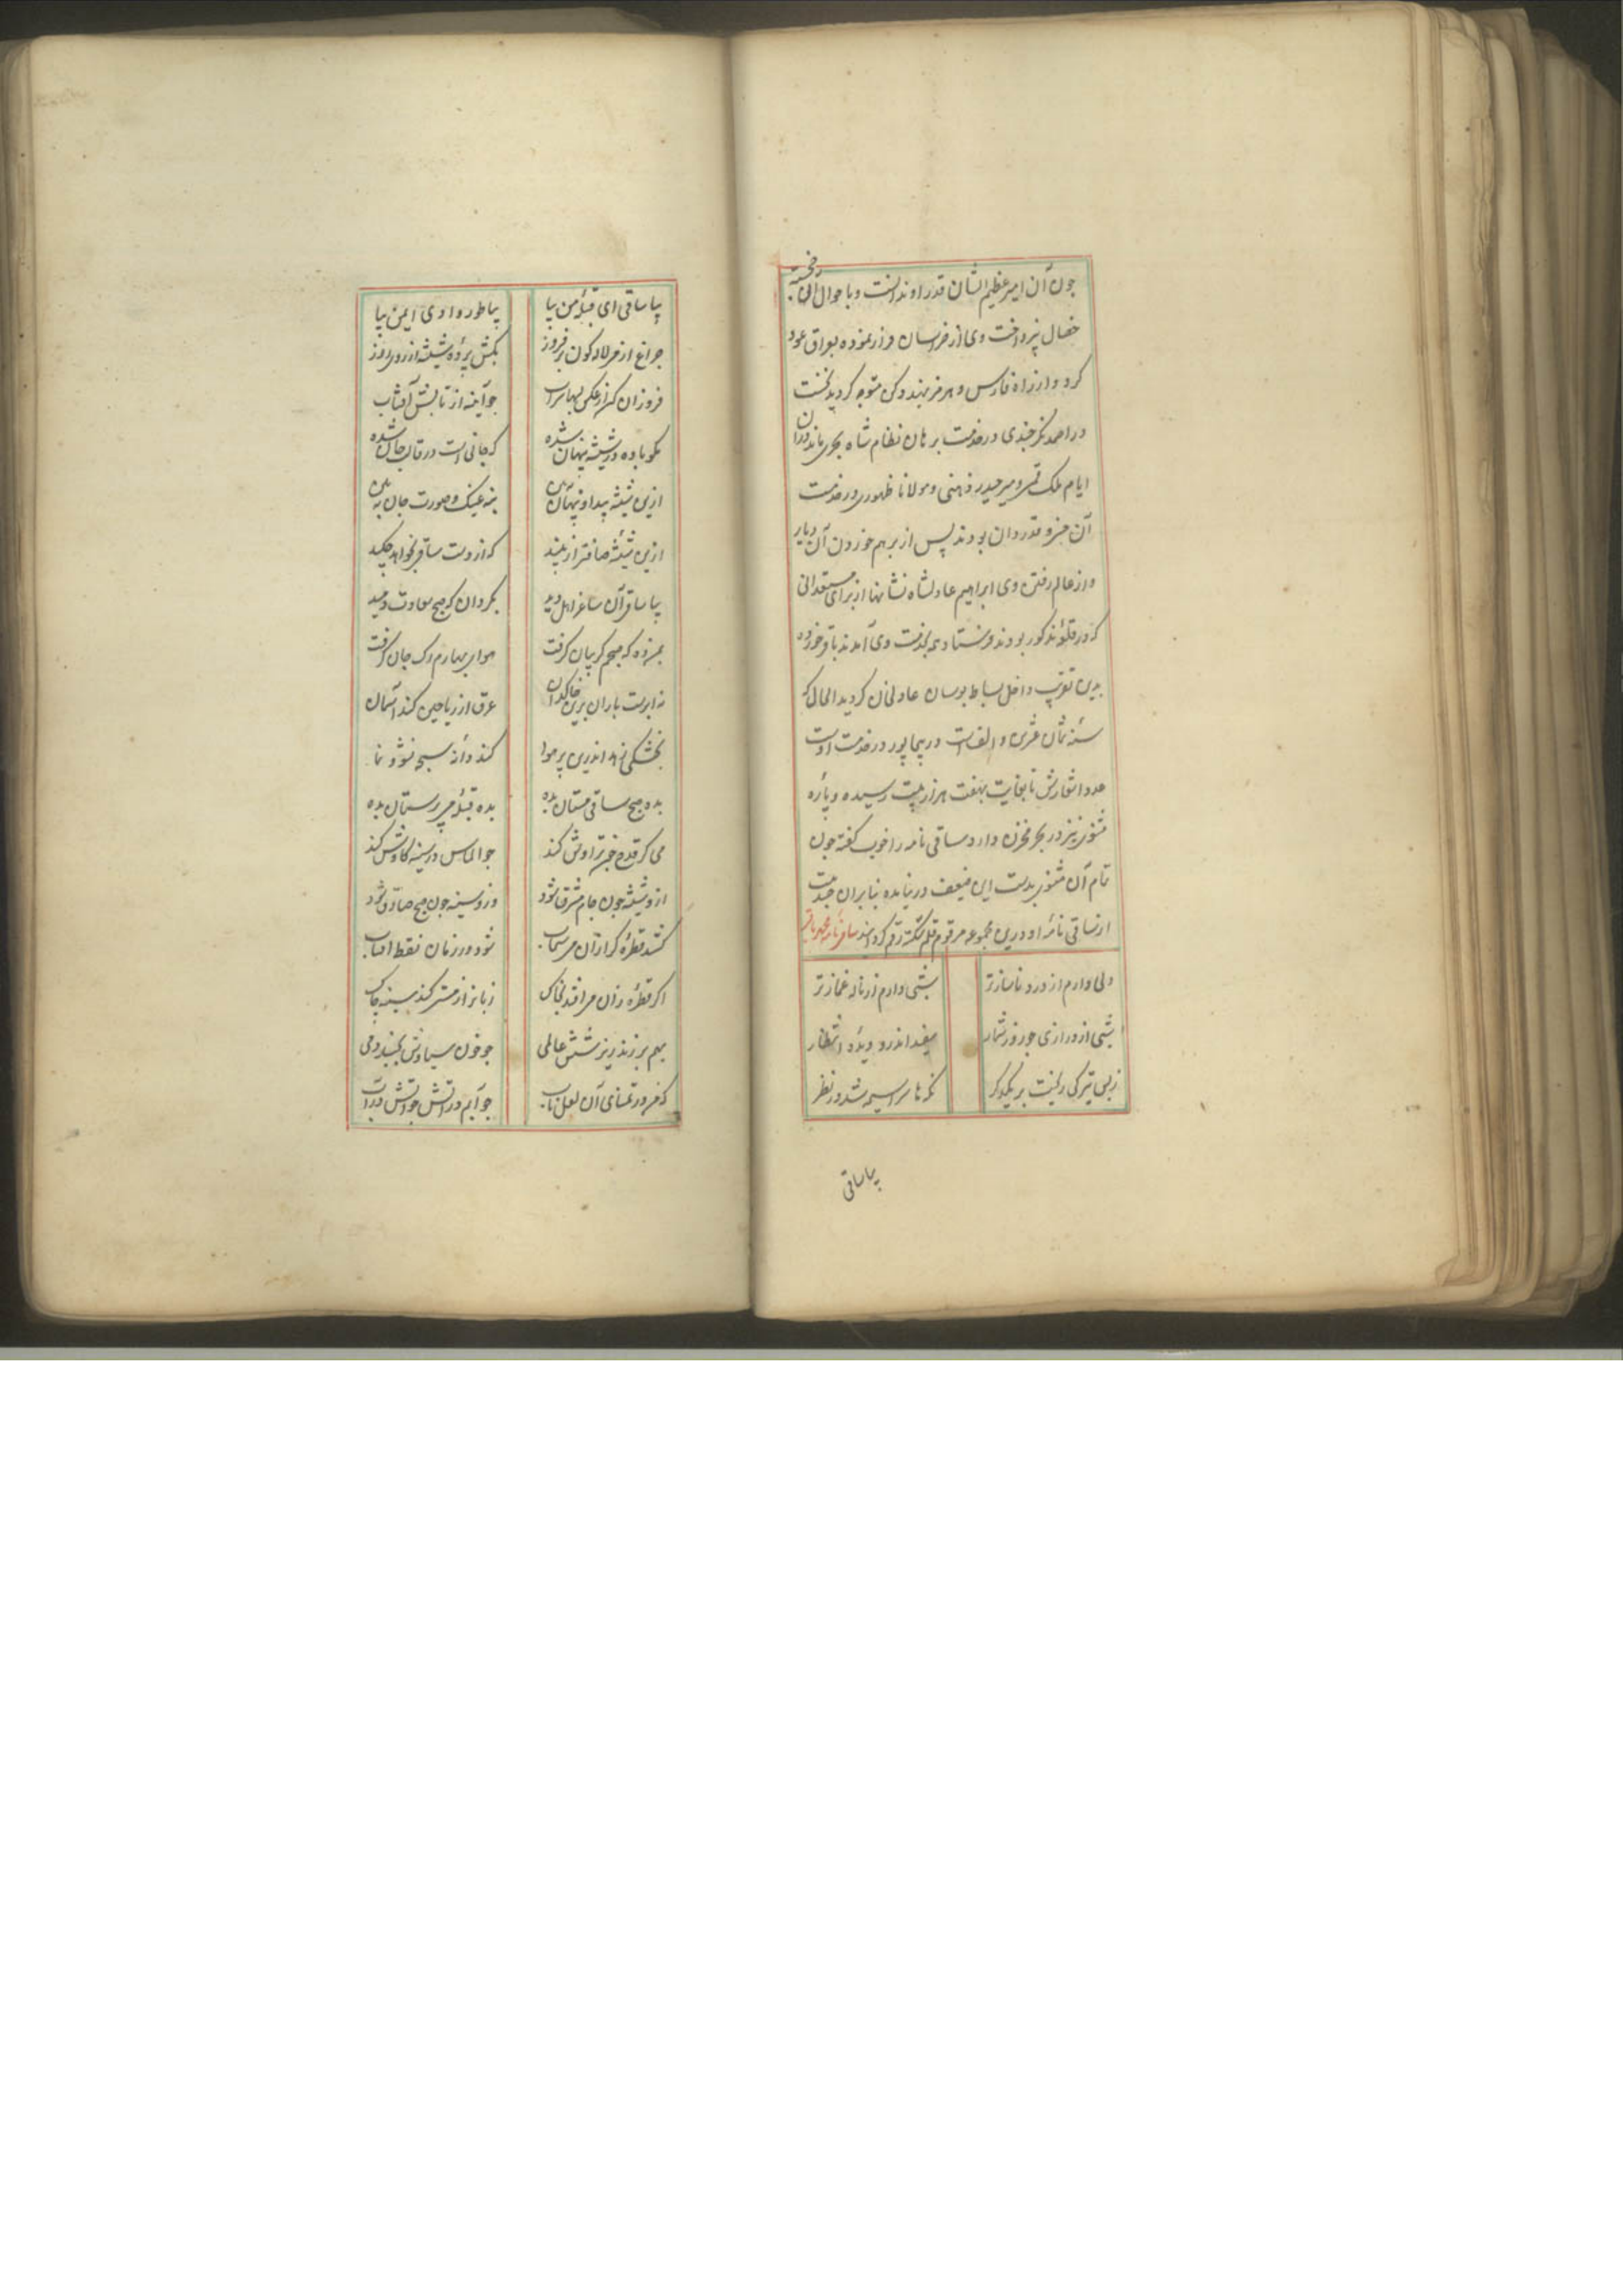 چون آن امیر عظیم الشان قدر او ندانست و با حوال آن خجسته
خصال نپرداخت وی از خراسان فرار نموده بعراق عود
کرد و از راه فارس و هرمز بهند دکن متوجه گردید نخست
در احمدنگر چندی در خدمت برهان نظام شاه بحری ماند در آن
ایام ملک قمی و میر حیدر ذهنی و مولانا ظهوری در خدمت
آن خسرو قدردان بودند پس از برهم خوردن آن دیار
و از عالم رفتن وی ابراهیم عادلشاه نشانها از برای مستعدانی
که در قلعه مذکور بودند فرستاد همه بخدمت وی آمدند باقر خرده
بدین تقریب داخل بساط بوسان عادلخان گردید الحال که
سنه ثمان عشرین و الف است در بیجاپور در خدمت اوست
عدد اشعارش تا بغایت بهفت هزار بیت رسیده و پاره
مثنوی نیز در بحر مخزن دارد ساقی نامه را خوب گفته چون
تمام آن مثنوی بدست این ضعیف در نیامده بنابران چند بیت
از ساقی نامه او درین مجموعه مرقوم قلم شکسته رقم گردانید ساقی نامه محمد باقر
دلی دارم از درد ناسازتر
شبی دارم از ناله غمازتر
شبی از درازی چو روز شمار
سفید اندرو دیده انتظار
ز بس تیرگی ریخت بر یکدگر
نگه ها سراسیمه شد در نظر
بیا ساقی
بیا ساقی ای قبله من بیا
بیا طور و وادی ایمن بیا
چراغ از می لاله گون برفروز
بکش پرده شیشه از روی روز
فروزان کن از عکس می
چو آینه از تابش آفتاب
مگو باده در شیشه پنهان شده
که جانی است در قالب جان شده
ازین شیشه پیدا و پنهان ببین
بنه عینک و صورت جان ببین
ازین شیشه صافتر از پلند
که از دست ساقی نخواهد چکید
بیا ساقی آن ساغر اهل دید
بگردان که صبح سعادت دمید
بمن ده که صبحم گریبان گرفت
هوای بهارم رگ جان گرفت
نه ابرست باران برین خاکدان
عرق از ریاحین کند آسمان
بخشکی زهد اندرین پر هوا
کند دانه سبحه نشو و نما
بده صبح ساقی مستان بده
بده قبله می پرستان بده
می کز قدح خون تراوش کند
چو الماس در سینه کاوش کند
ازو شیشه چون جام مشرق شود
وزو سینه چون صبح صادق شود
کشد قطره گر از آن می سحاب
شود در زمان نقطه آفتاب
اگر قطره زان می افتد بخاک
زبانه از حسرت کند سینه چاک
بهم بر زند ریزشش عالمی
چو خون سیاوش نجنبد دمی
که من در تمنای آن لعل ناب
چو آبم در آتش چو آتش در آب